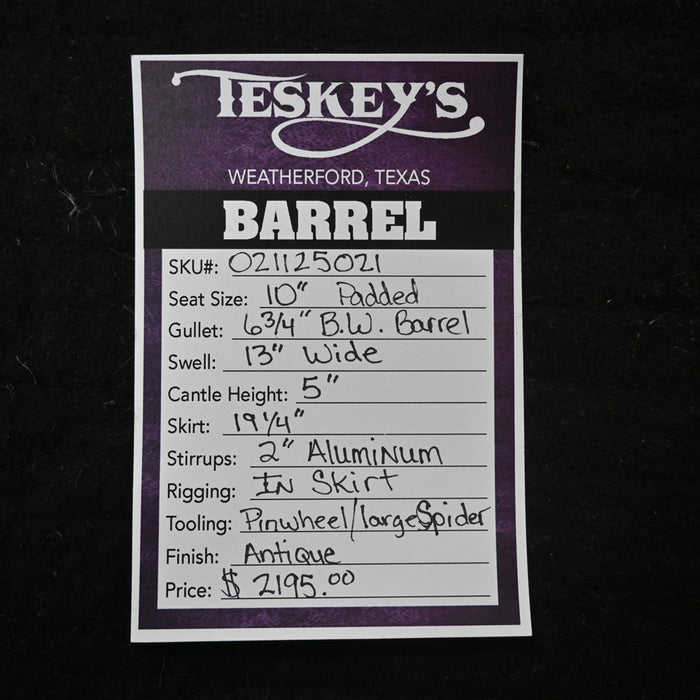 TESKEY'S
WEATHERFORD, TEXAS
BARREL
SKU#: 021125021
Seat Size: 10" Padded
Gullet: 6 3/4" B.W. Barrel
Swell: 13" Wide
Cantle Height: 5"
Skirt: 19 1/4"
Stirrups: 2" Aluminum
Rigging: In Skirt
Tooling: Pinwheel/large Spider
Finish: Antique
Price: $ 2195.00